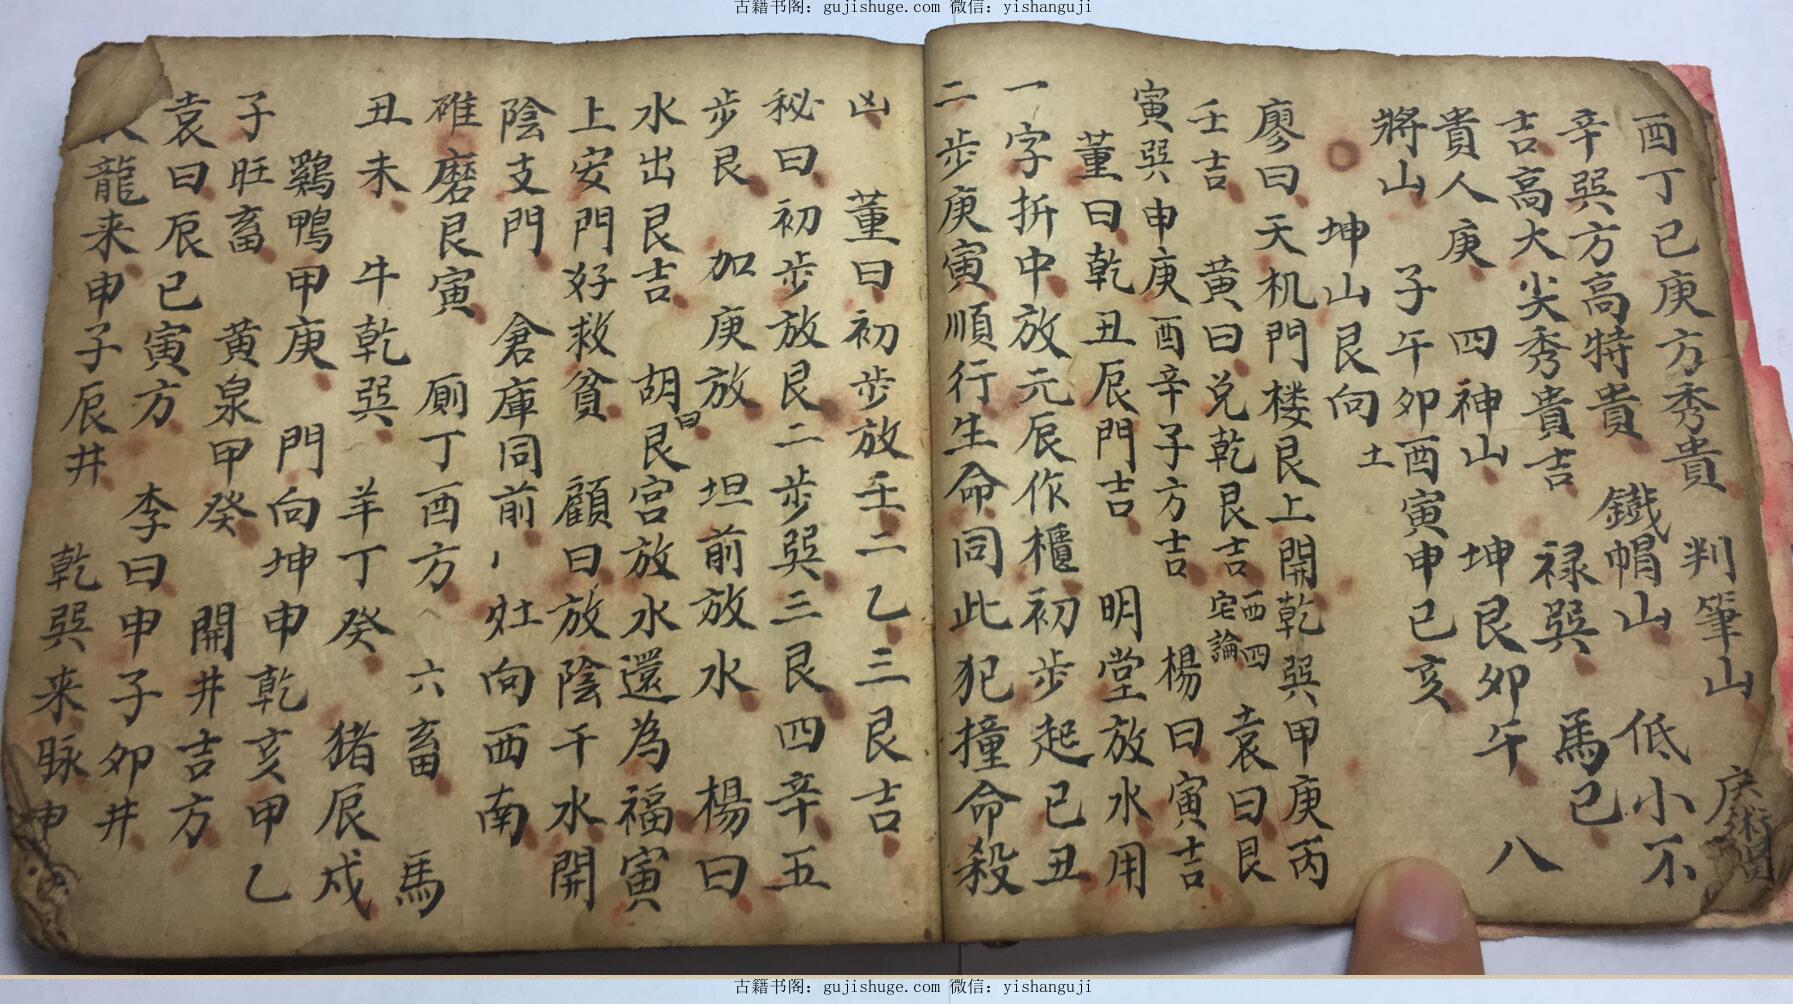 古籍书阁：gujishuge.com 微信：yishanguji
酉丁巳庚方秀貴 判筆山 庚
辛巽方高特貴 鐵帽山 低小不
吉高大尖秀貴吉 禄巽 馬已
貴人庚 四神山 坤艮卯午 八
將山 子午卯酉寅申巳亥
坤山艮向 土
廖曰天机門楼艮上開乾巽甲庚丙
壬吉 黃曰兌乾艮吉 西四宅論 袁曰艮
寅巽申庚酉辛子方吉 楊曰寅吉
董曰乾丑辰門吉 明堂放水用
一字折中放元辰作櫃初步起巳丑
二步庚寅順行生命同此犯撞命殺
凶 董曰初步放壬二乙三艮吉
秘曰初步放艮二步巽三艮四辛五
步艮 加庚放坦前放水 楊曰
水出艮吉 胡曰艮宮放水還為福寅
上安門好救貧 顧曰放陰干水開
陰支門 倉庫同前 灶向西南
碓磨艮寅 厠丁酉方 六畜 馬
丑未 牛乾巽 羊丁癸 猪辰戍
鷄鴨甲庚 門向坤申乾亥甲乙
子旺畜 黃泉甲癸 開井吉方
袁曰辰巳寅方 李曰申子卯井
龍来申子辰井 乾巽来脉申
古籍书阁：gujishuge.com 微信：yishanguji